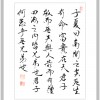 子夏曰商聞之矣死生
有命富貴在天君子
敬而無失與人恭而有禮
四海之內皆兄弟也君子
何患乎無兄弟也